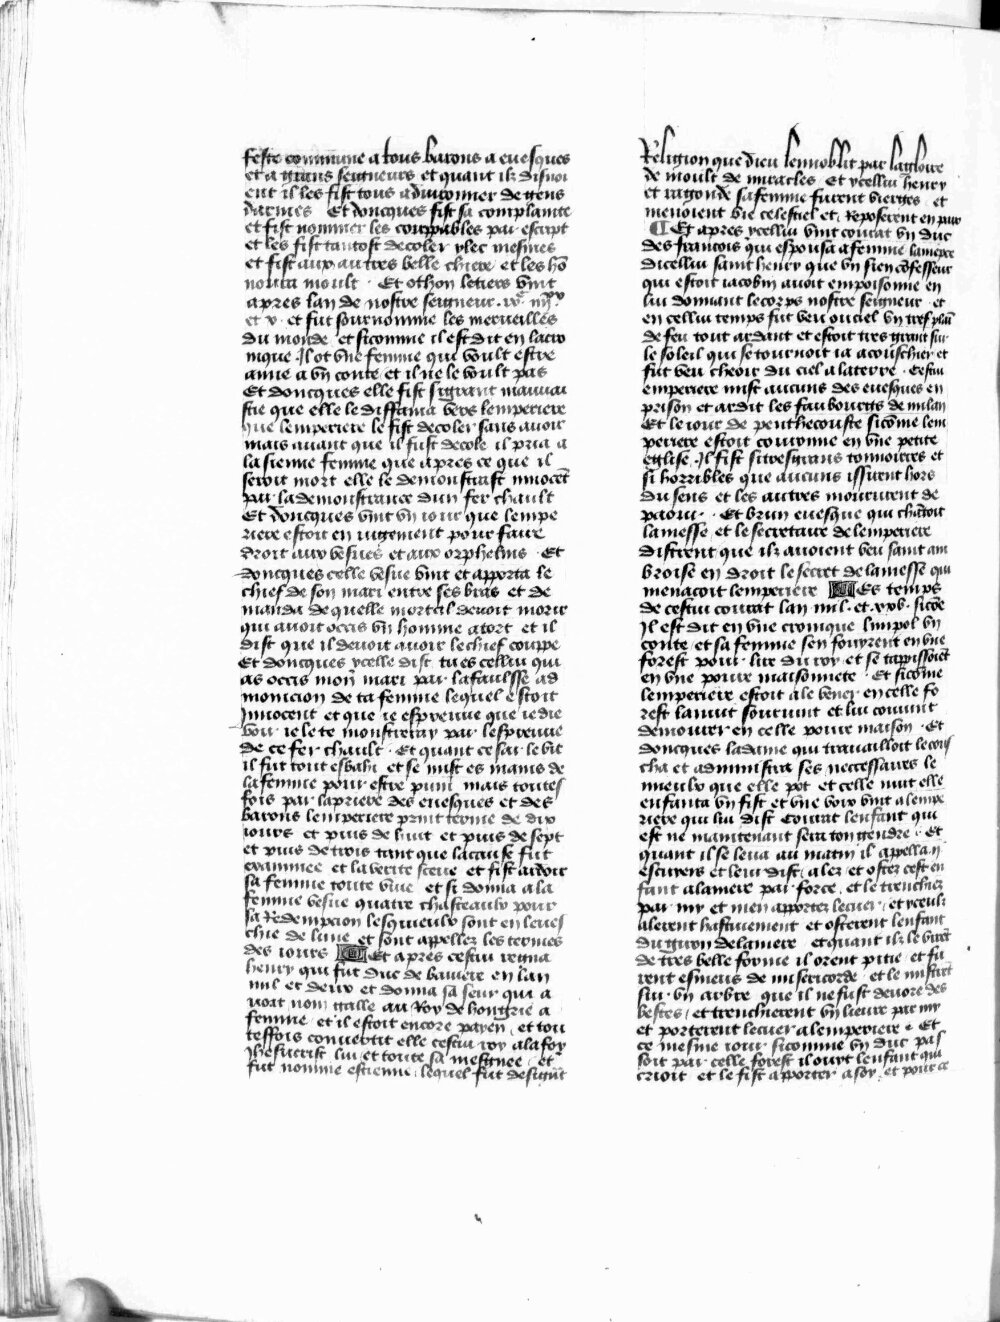 feste commune a tous barons a euesques
et a grans seigneurs et quant ilz disnoi
ent il les fist tous aduironner de gens
darmes Et doncques fist sa complainte
et fist nommer les coupables par escript
et les fist tantost decoler ylec mesmes
et fist aux autres belle chiere et les hō
noura moult · Et othon letiers vint
apres lan de nostre seigneur · ixᶜ iiijˣˣ
et v · et fut sournomme les merueilles
du monde et sicomme il est dit en lacro
nique · Il ot vne femme qui voult estre
amie a vn conte et il ne le voult pas
Et doncques elle fist sigrant mauuai
stie que elle le diffama vers lemperiere
que lemperiere le fist decoler sans auoir
mais auant que il fust decole il pria a
la sienne femme que apres ce que il
seroit mort elle le demonstrast innocēt
par la demonstrance dun fer chault
Et doncques vint vn iour que lempe
riere estoit en iugement pour faire
droit aux vesues et aux orphelins · Et
doncques celle vesue vint et apporta le
chief de son mari entre ses bras et de
manda de quelle mort cil deuoit morir
qui auoit occis vn homme a tort et il
dist que il deuoit auoir le chief coupe
Et doncques ycelle dist tu es cellui qui
as occis mon mari par la faulsse ad
monicion de ta femme lequel estoit
Innocent et que ie espreuue que ie die
voir ie le te monstreray par lespreuue
de ce fer chault · Et quant cesar le vit
il fut tout esbahi et se mist es mains de
la femme pour estre puni mais toutes
fois par la priere des euesques et des
barons lemperiere print terme de dix
iours et puis de huit et puis de sept
et puis de trois tant que la cause fut
examinee et la verite sceue et fist ardoir
sa femme toute viue et si donna a la
femme vesue quatre chasteaulx pour
sa Redempcion lesquieulx sont en leues
chie de lune et sont appellez les termes
des iours Et apres cestui regna
henry qui fut duc de bauiere en lan
mil et deux et donna sa seur qui a
uoit nom galle au Roy de hongrie a
femme et il estoit encore payen et tou
teffois conuertit elle cestui roy a la foy
Ihesucrist lui et toute sa mesgnee et
fut nomme estienne lequel fut de sigrāt
Religion que dieu lennoblit par la gloire
de moult de miracles Et ycellui henry
et ragonde sa femme furent vierges et
menoient vie celestiel et Reposerent en paix
Et apres ycellui vint conrat vn duc
des francois qui espousa a femme la niepce
dicellui saint henry que vn sien cōfesseur
qui estoit iacobin auoit empoisonne en
lui donnant le corps nostre seigneur et
en cellui temps fut veu ou ciel vn tref plai
de feu tout ardant et estoit tres grant sur
le soleil qui se tournoit ia a couschier et
fut veu cheoir du ciel a la terre · Cestui
emperiere mist aucuns des euesques en
prison et ardit les faubourgs de milan
Et le iour de penthecouste sicōme lem
periere estoit couronne en vne petite
eglise · Il fist si tresgrans tonnoirres et
si horribles que aucuns issirent hors
du sens et les autres moururent de
paour · Et brun euesque qui chātoit
la messe et le secretaire de lemperiere
distrent que ilz auoient veu saint am
broise en droit le secret de la messe qui
menacoit lemperiere Es temps
de cestui conrat lan mil · et · xxv · sicōe
Il est dit en vne cronique limpol vn
conte et sa femme sen fouyrent en vne
forest pour lire du roy et se tappissoiēt
en vne poure maisonnete · Et sicōme
lemperiere estoit ale vener en celle fo
rest la nuit souruint et lui conuint
demourer en celle poure maison · Et
doncques la dame qui trauailloit le cous
cha et administra ses neccessaires le
mieulx que elle pot et celle nuit elle
enfanta vn fist et vne voix vint a lempe
riere qui lui dist Conrat lenfant qui
est ne maintenant sera ton gendre · Et
quant il se leua au matin il appella ij
escuiers et leur dist alez et ostez cest en
fant a la mere par force et le trenchiez
par my et men apportez le cuer et yceulx
alerent hastiuement et osterent lenfant
du giron de la mere et quant ilz le virēt
de tres belle forme il orent pitie et fu
rent esmeus de misericorde et le mistrēt
sur vn arbre que il ne fust deuore des
bestes et trenchierent vn lieure par my
et porterent le cuer a lemperiere · Et
ce mesme iour sicomme vn duc pas
soit par celle forest il ouyt lenfant qui
crioit et le fist apporter a soy et pour ce